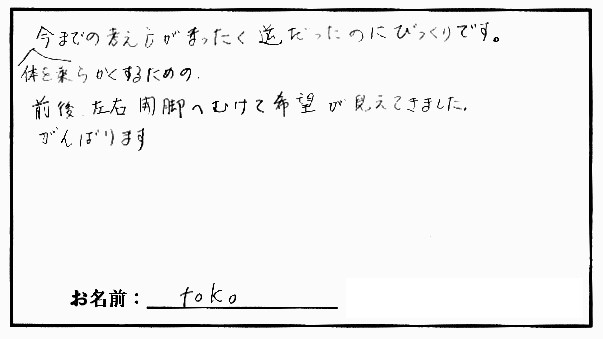 今までの考え方がまったく逆だったのにびっくりです。
体を柔らかくするための、
前後左右開脚へむけて希望が見えてきました。
がんばります
お名前： toko